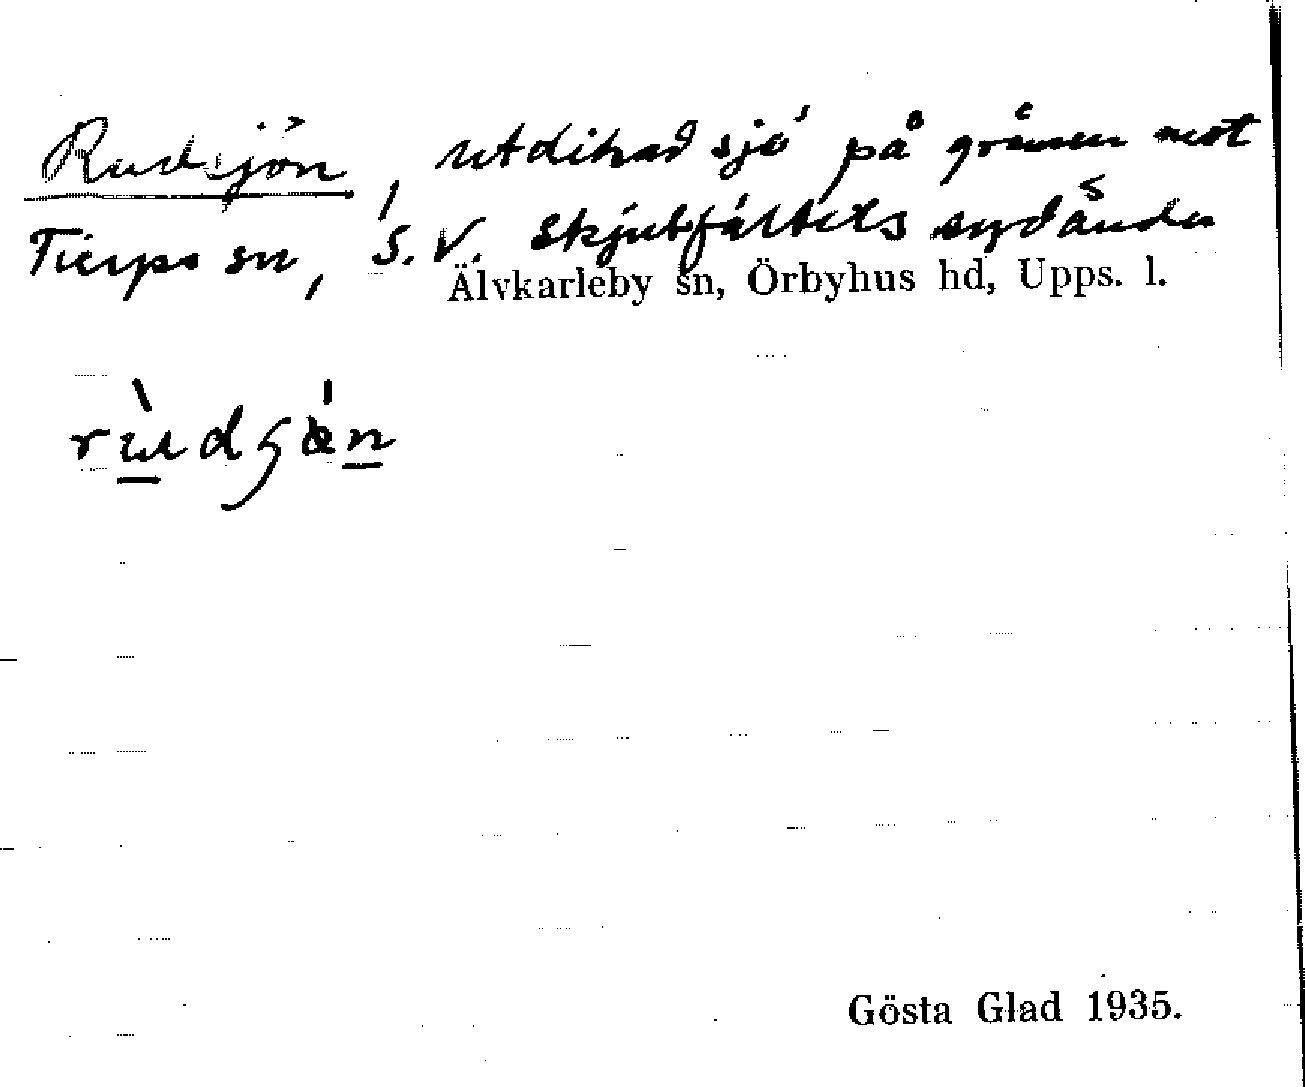 Rudsjön, utdikad sjö på gränsen mot
Tierps sn, S.V. Skjutfältets sydända
Älvkarleby sn, Örbyhus hd, Upps. l.
Gösta Glad 1935.